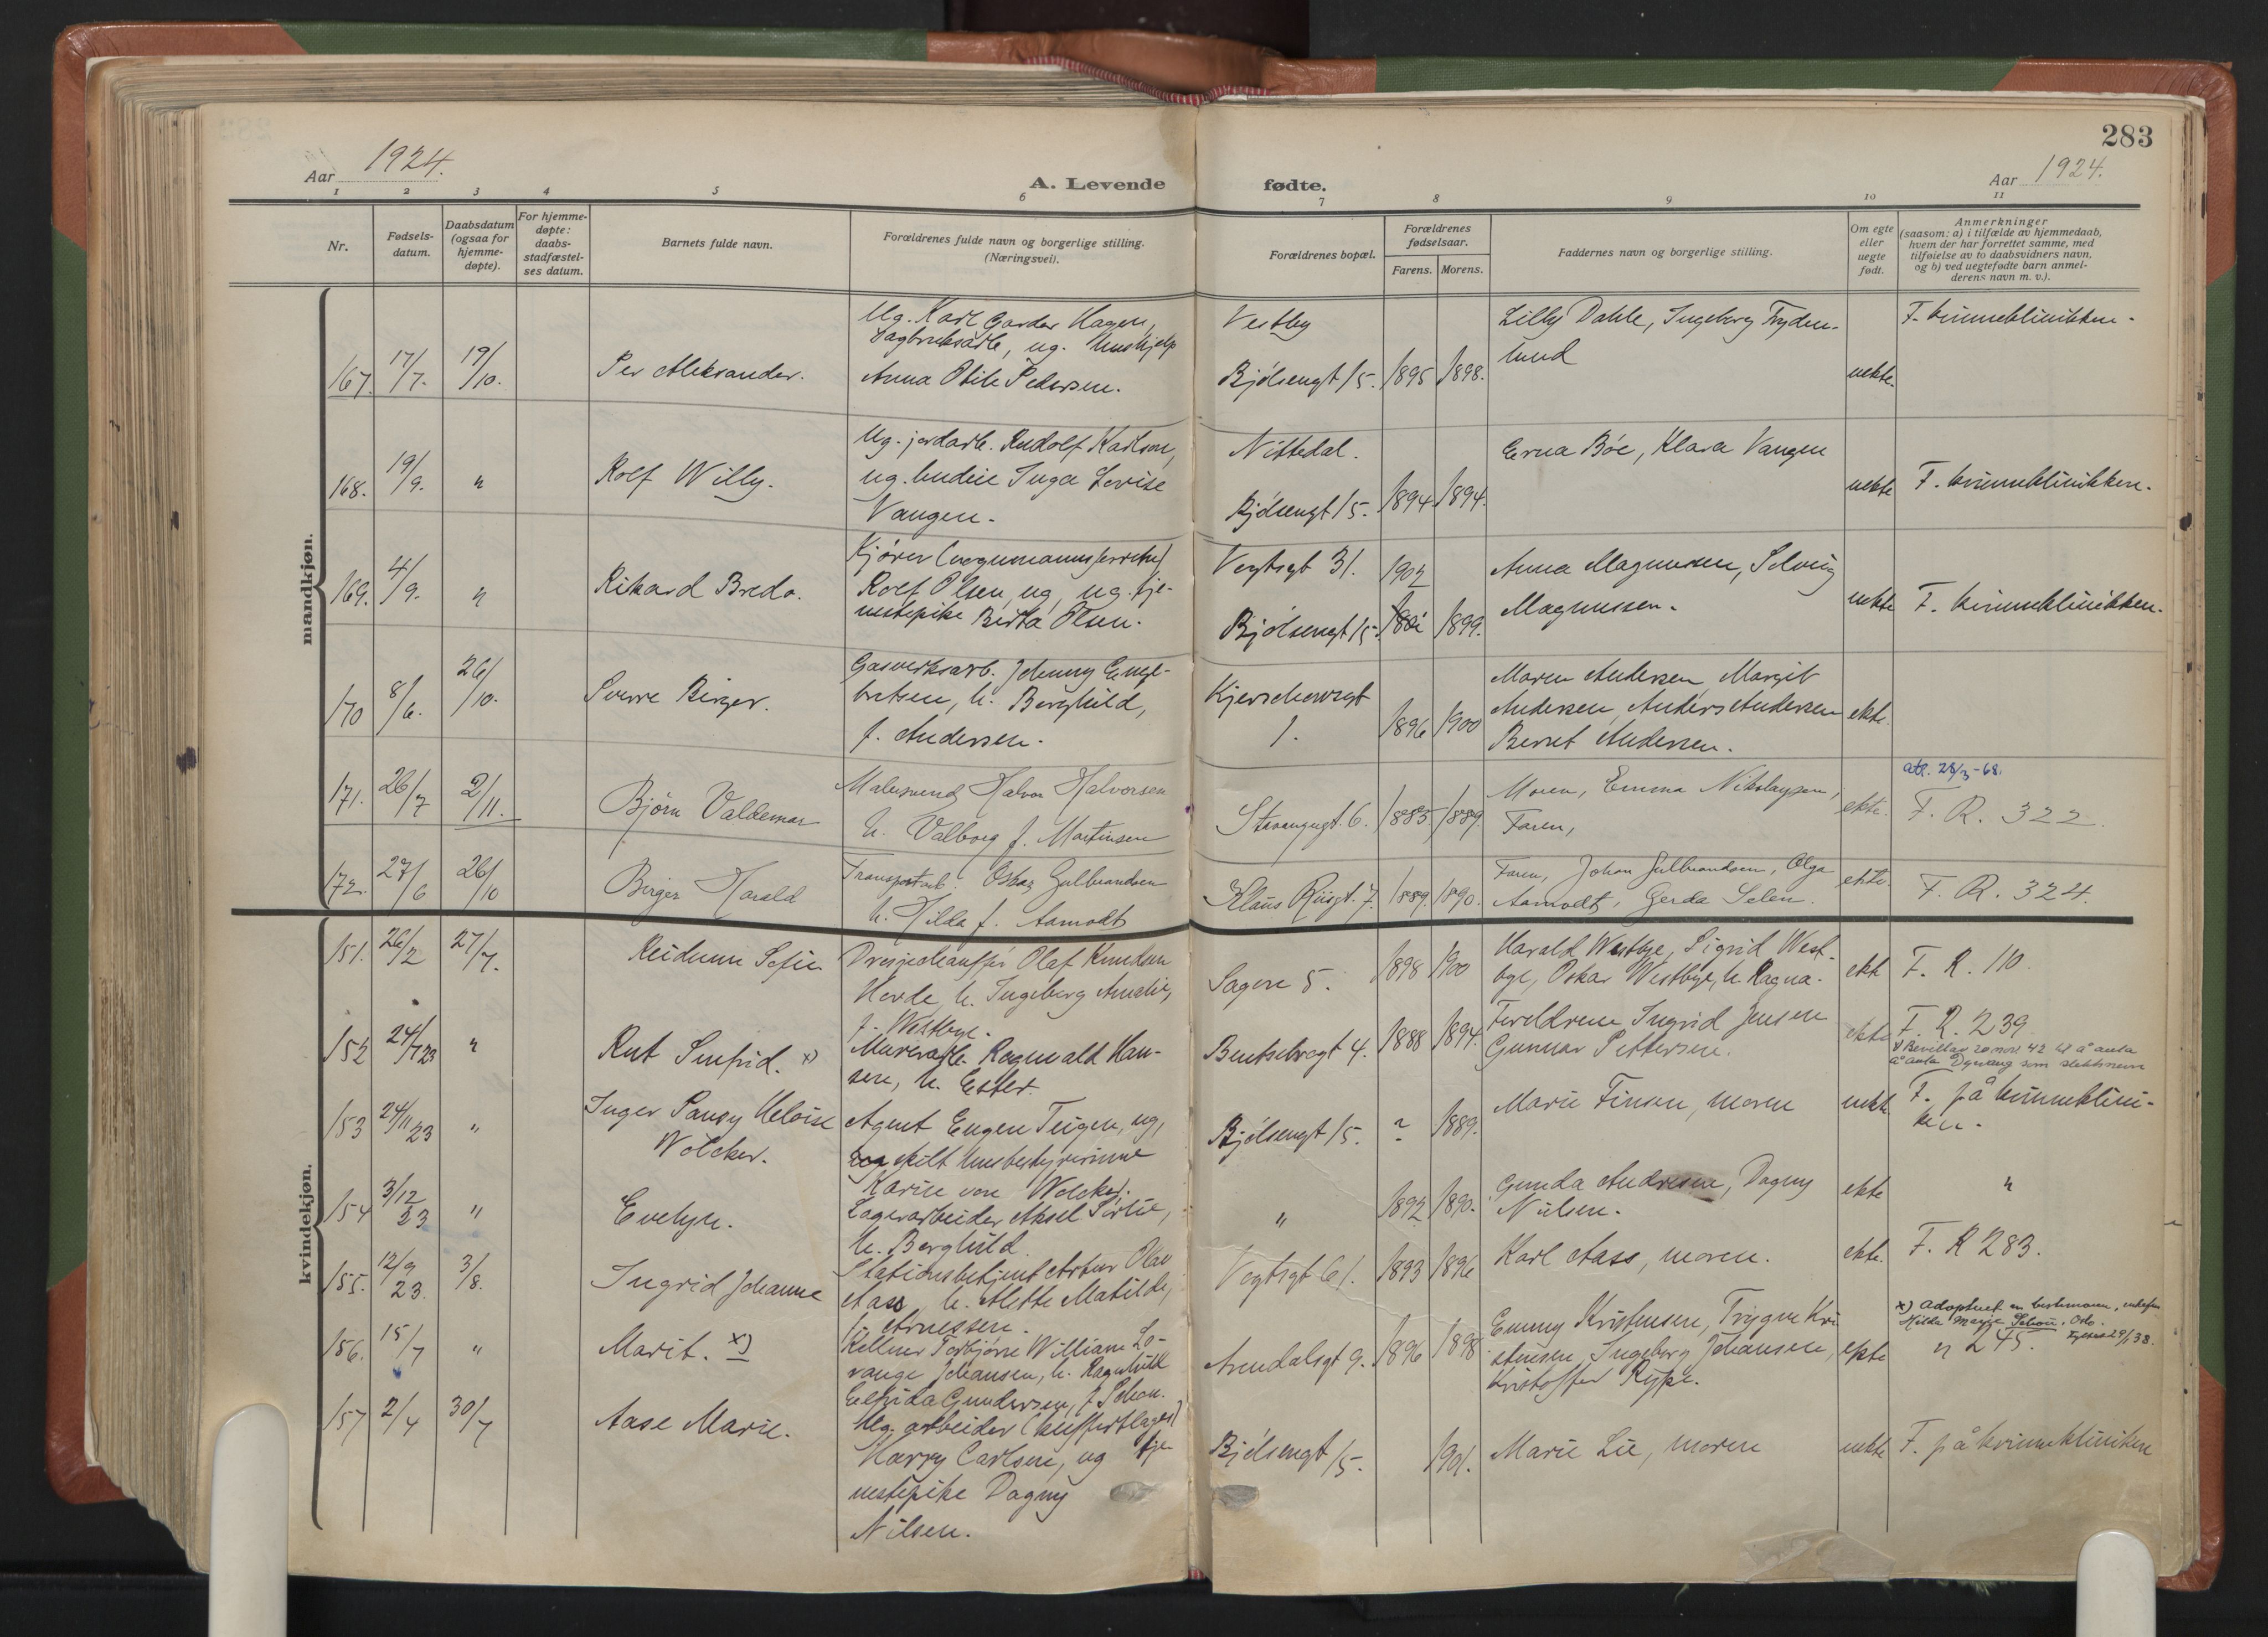 283
Aar 1924.
A. Levende fødte.
Aar 1924.
1 2 3 4 5 6 7 8 9 10 11
Nr.
Fødsels-
datum.
Daabsdatum
(ogsaa for
hjemme-
døpte).
For hjemme-
døpte:
daabs-
stadfæstel-
ses datum.
Barnets fulde navn.
Forældrenes fulde navn og borgerlige stilling.
(Næringsvei).
Forældrenes bopæl.
Forældrenes
fødselsaar.
Farens. Morens.
Faddernes navn og borgerlige stilling.
Om egte
eller
uegte
født.
Anmerkninger
(saasom: a) i tilfælde av hjemmedaab,
hvem der har forrettet samme, med
tilføielse av to daabsvidners navn,
og b) ved uegtefødte barn anmel-
derens navn m. v.).
mandkjøn.
167. 17/7. 19/10. Per Aleksander.
Ug. Karl Gardar Hagen,
Sagbruksarb, ug. hushjelp
Anna Otile Pedersen.
Vestby
Bjølsengt 15. 1895 1898.
Lilly Dahle, Ingeborg Tryden-
lund
uekte.
F. kvinneklinikken.
168. 19/9. " Rolf Willy.
Ug. jordarb. Rudolf Karlson,
ug. budeie Inga Lovise
Vangen.
Nittedal.
Bjølsengt 15. 1894. 1894.
Erna Bøe, Klara Vangen
uekte
F. kvinneklinikken.
169. 4/9. " Rikard Bredo.
Kjører (vognmannsforretn)
Rolf Olsen, ug, ug. tje-
nestepike Berta Olsen.
Vogtsgt 31. 1902
Bjølsengt 15. 1899.
Anna Magnussen, Solveig
Magnussen.
uekte
F. kvinneklinikken.
170 8/6. 26/10. Sverre Birger.
Gasverksarb. Johnny Engel-
bretsen, h. Borghild,
f. Andersen.
Kjerschowsgt
1. 1896 1900
Maren Andersen, Margit
Andersen, Anders Andersen
Bernt Andersen.
ekte.
171. 26/7 2/11. Bjørn Valdemar
Malersvend Halvor Halvorsen
h. Valborg f. Martinsen
Stavangergt. 6. 1885. 1889.
Moren, Emma Nikolaysen,
Faren,
ekte.
att. 28/3-68.
F. R. 322.
172. 27/6 26/10 Birger Harald
Transportarb. Oskar Gulbrandsen
h. Hilda f. Aamodt
Klaus Riisgt. 7. 1889. 1890.
Faren, Johan Gulbrandsen, Olga
Aamodt, Gerda Selen.
ekte.
F. R. 324.
kvindekjøn.
151. 26/2 27/7. Reidunn Sofie
Drosjechauffør Olaf Knudsen
Herde, h. Ingeborg Amalie,
f. Westbye.
Sagene 5. 1898 1900
Harald Westbye, Sigrid West-
bye, Oskar Westbye, h. Ragna.
ekte
F. R. 110.
152 24/7 23 " Rut Sinfrid. x)
Murerarb. Ragnvald Han-
sen, h. Ester.
Bentsebrogt 4. 1888 1894.
Foreldrene, Ingrid Jensen
Gunnar Pettersen.
ekte
F. R. 239
x) Bevilling 20 nov 42 til å anta
å anta som slektsnavn
153 24/11 23 " Inger Pansy Heloise
Wolcker.
Agent Eugen Teigen, ug,
skilt husbestyrerinne
Karin von Wolcker.
Bjølsengt 15. ? 1889.
Marie Finson, moren
uekte
F. på kvinneklini-
ken.
154 3/12 23 " Evelyn.
Lagerarbeider Aksel Sørlie,
h. Borghild.
" 1892 1890.
Gunda Andresen, Dagny
Nilsen.
ekte
"
155. 12/9 23. 3/8. Ingrid Johanne
Stationsbetjent Artur Olav
Aass, h. Alette Matilde,
f. Arnessen.
Vogtsgt 61. 1893 1896
Karl Aass, moren.
ekte.
F. R 283.
156. 15/7 " Marit. x)
Kellner Torbjørn William Lo-
range Johansen, h. Ragnhild
Elfrida Gundersen, f. Schou.
Arendalsgt 9. 1896 1898.
Emmy Kristensen, Trygve Kri-
stensen, Ingeborg Johansen,
Kristoffer Rype.
ekte
x) Adoptert av bestemoren,
Hilda Marie Schou, Oslo.
Fylkes 29/1 38.
" 245.
157 2/4 30/7 Aase Marie.
Ug. arbeider (kuffertlager)
Harry Carlsen, ug tje-
nestepike Dagny
Nilsen.
Bjølsengt 15. 1901.
Marie Lie, moren
uekte
F. på kvinnekliniken